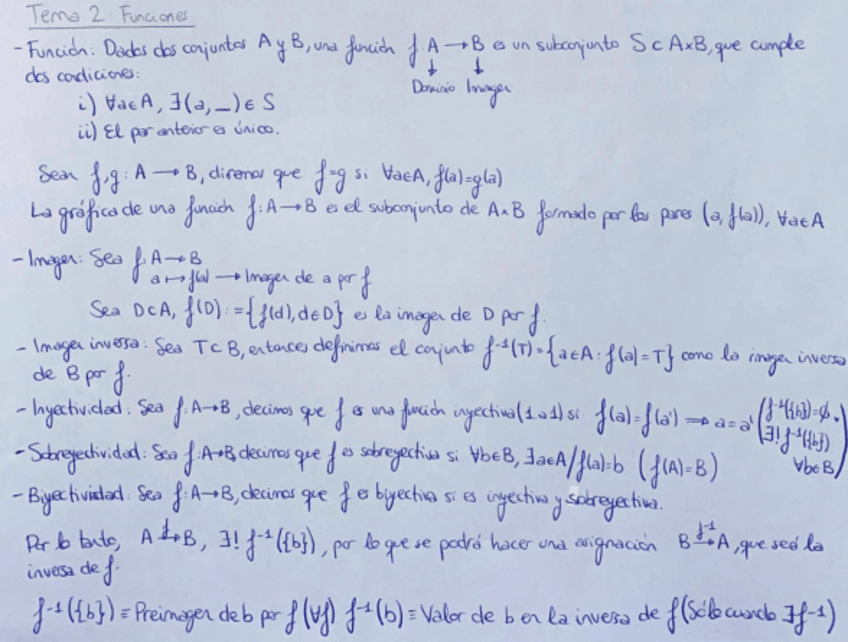 Tema 2: Funciones
- Función: Dados dos conjuntos A y B, una función f: A → B es un subconjunto S ⊂ A×B, que cumple
↓ ↓
dos condiciones:
Dominio Imagen
i) ∀a∈A, ∃(a, _) ∈ S
ii) El par anterior es único.
Sean f,g: A → B, diremos que f=g si ∀a∈A, f(a)=g(a)
La gráfica de una función f: A→B es el subconjunto de A×B formado por los pares (a, f(a)), ∀a∈A
- Imagen: Sea f: A → B
a ↦ f(a) → Imagen de a por f
Sea D⊂A, f(D) := {f(d), d∈D} es la imagen de D por f.
- Imagen inversa: Sea T⊂B, entonces definimos el conjunto f⁻¹(T) = {a∈A : f(a)=T} como la imagen inversa
de B por f.
- Inyectividad: Sea f: A→B, decimos que f es una función inyectiva (1 a 1) si f(a)=f(a') ⟹ a=a' (f⁻¹({b})=∅ ó
∃! f⁻¹({b})
∀b∈B)
- Sobreyectividad: Sea f: A→B, decimos que f es sobreyectiva si ∀b∈B, ∃a∈A / f(a)=b (f(A)=B)
- Biyectividad: Sea f: A→B, decimos que f es biyectiva si es inyectiva y sobreyectiva.
Por lo tanto, A →f B, ∃! f⁻¹({b}), por lo que se podrá hacer una asignación B →f⁻¹ A, que será la
inversa de f.
f⁻¹({b}) ≡ Preimagen de b por f (∀f) f⁻¹(b) ≡ Valor de b en la inversa de f (Sólo cuando ∃f⁻¹)